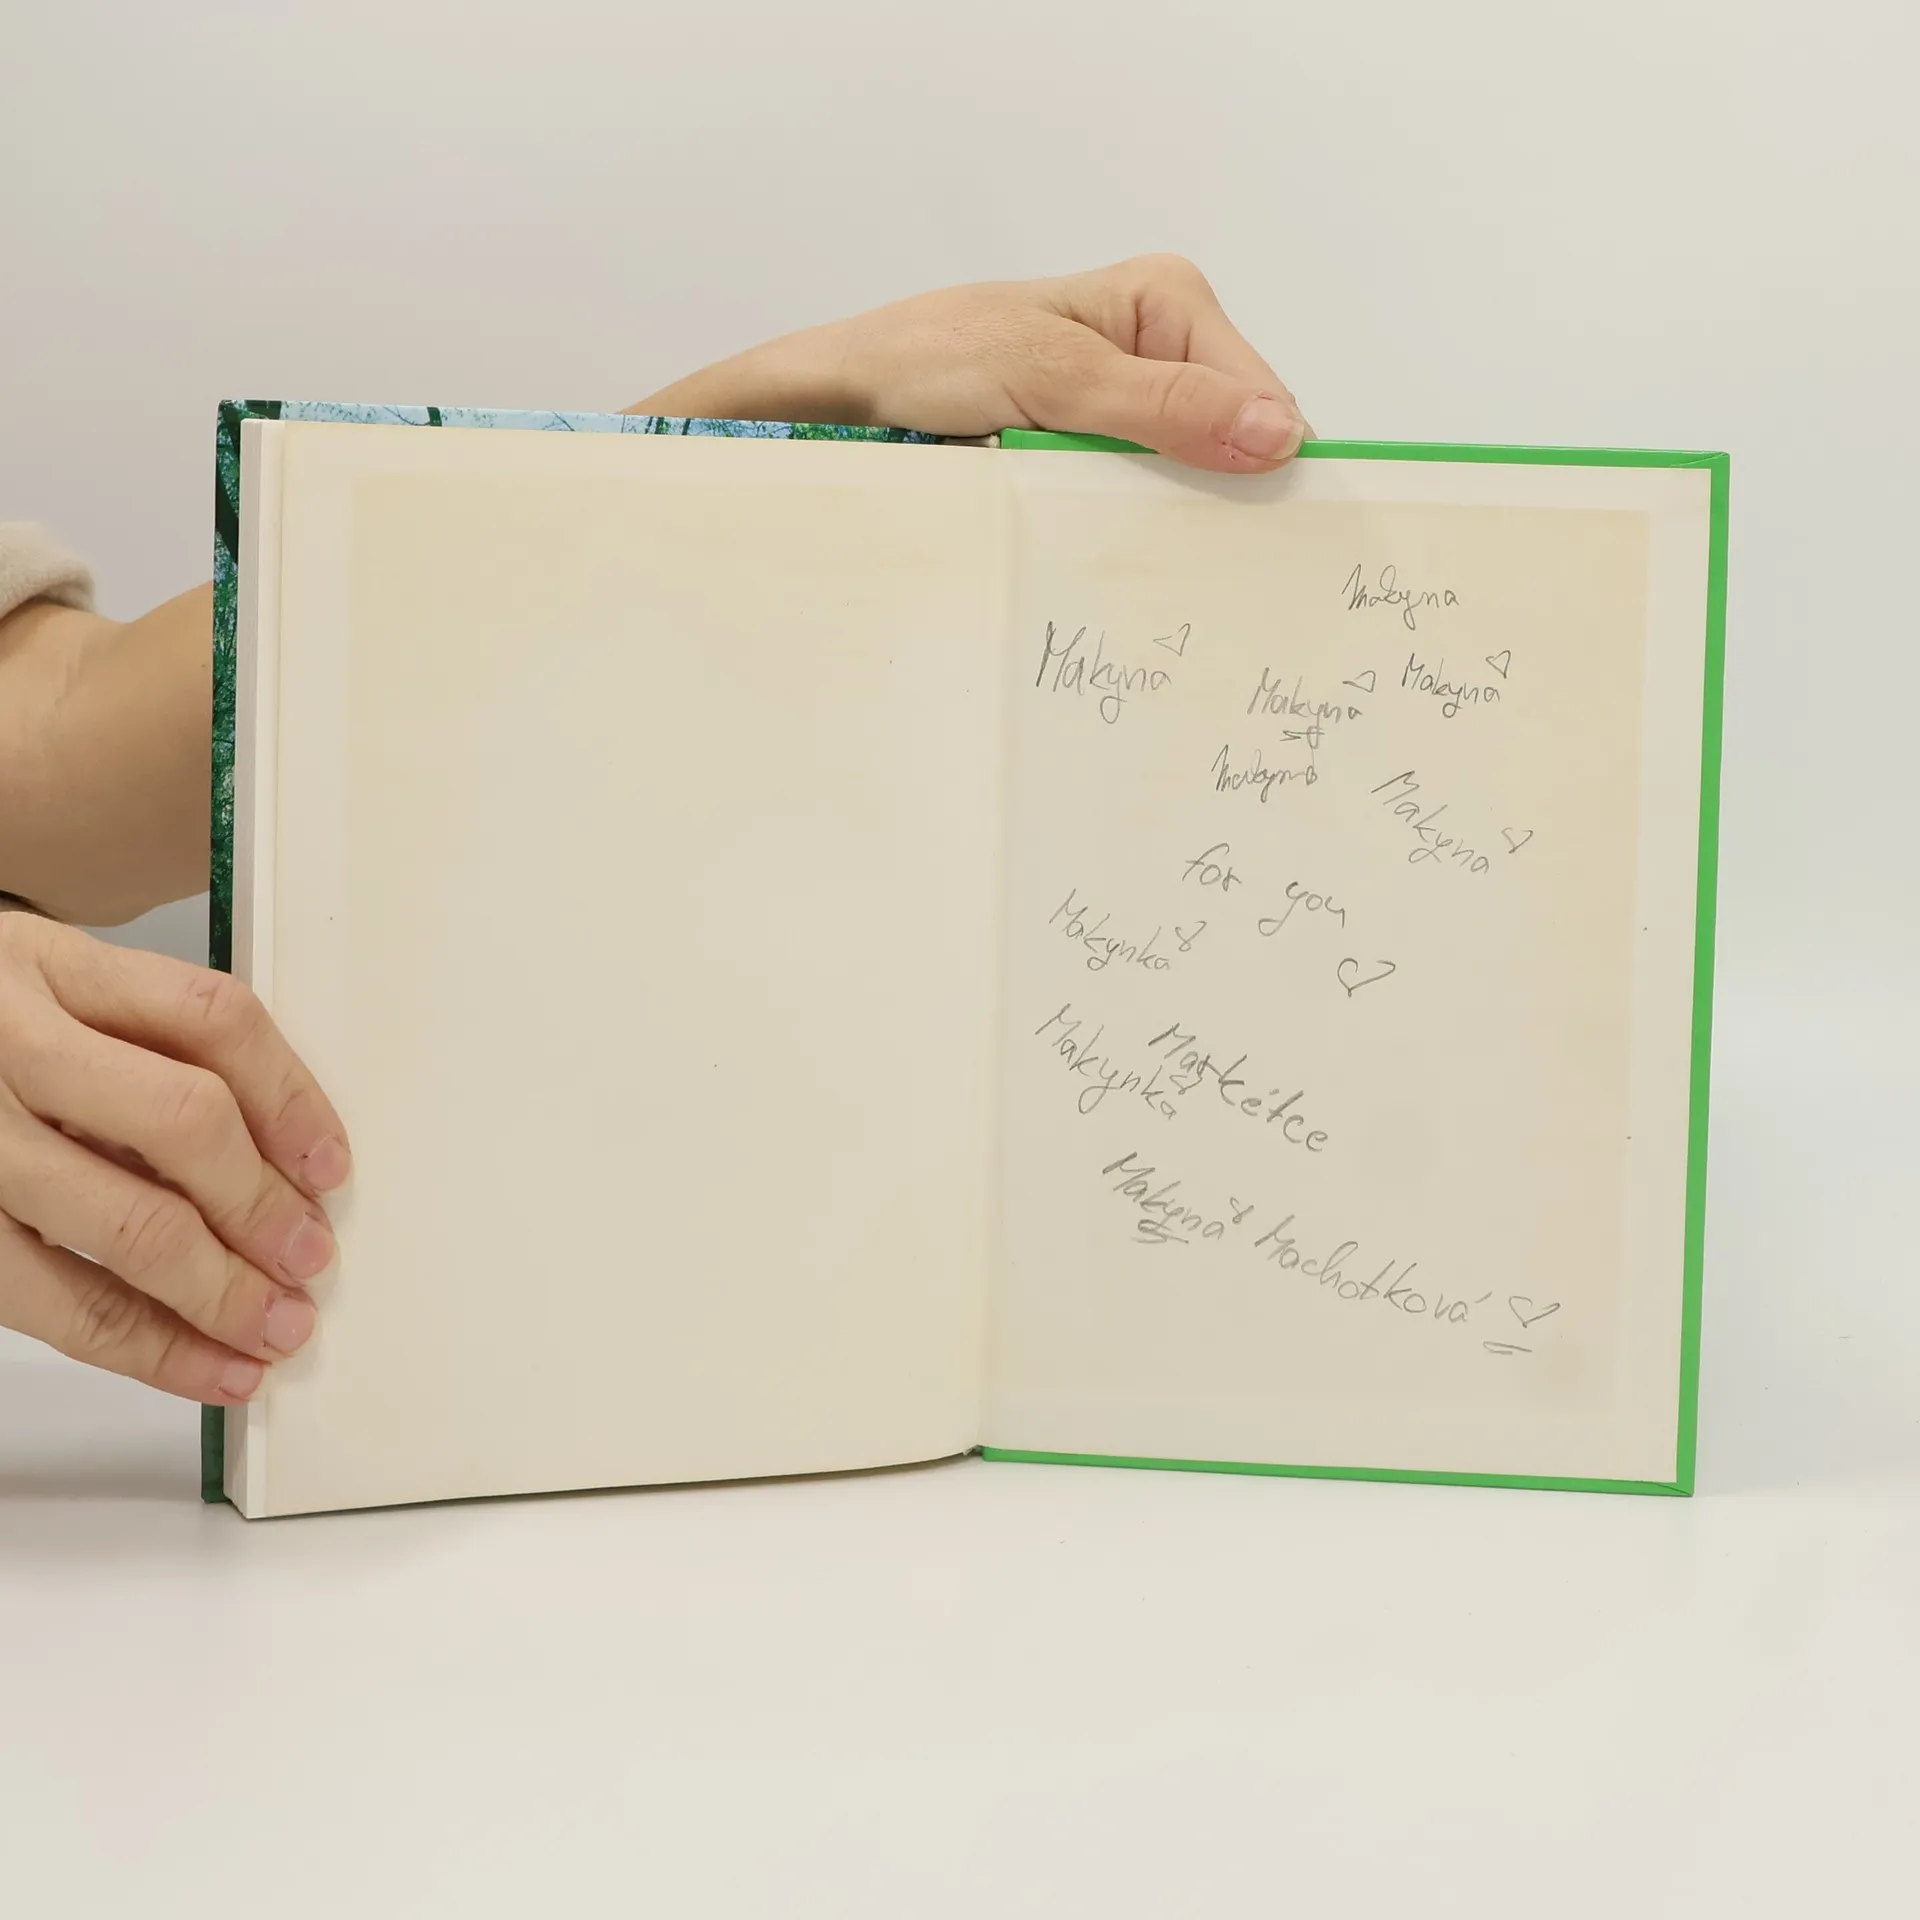 Makyna
Makyna ♡
Makyna ♡
Makyna ♡
Makyna
Makyna ♡
for you
♡
Makynka
Makynka
Markétce
Makyna Machotková ♡